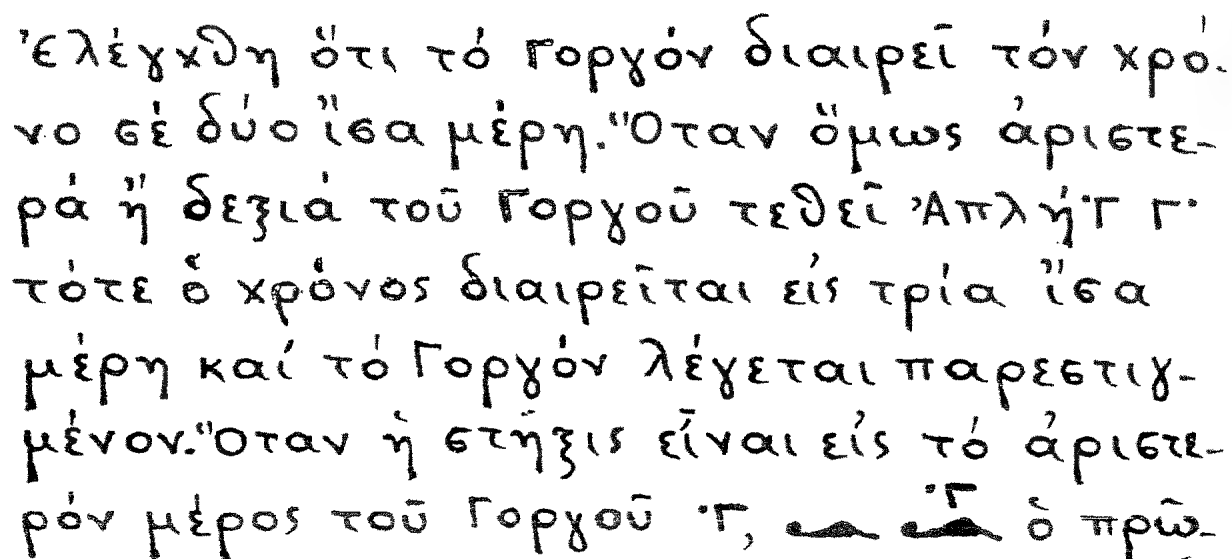 Ἐλέγχθη ὅτι τό Γοργόν διαιρεῖ τόν χρό-
νο σέ δύο ἴσα μέρη. Ὅταν ὅμως ἀριστε-
ρά ἤ δεξιά τοῦ Γοργοῦ τεθεῖ Ἁπλή ·Γ Γ·
τότε ὁ χρόνος διαιρεῖται εἰς τρία ἴσα
μέρη καί τό Γοργόν λέγεται παρεστιγ-
μένον. Ὅταν ἡ στῆξις εἶναι εἰς τό ἀριστε-
ρόν μέρος τοῦ Γοργοῦ ·Γ, ·Γ ὁ πρῶ-